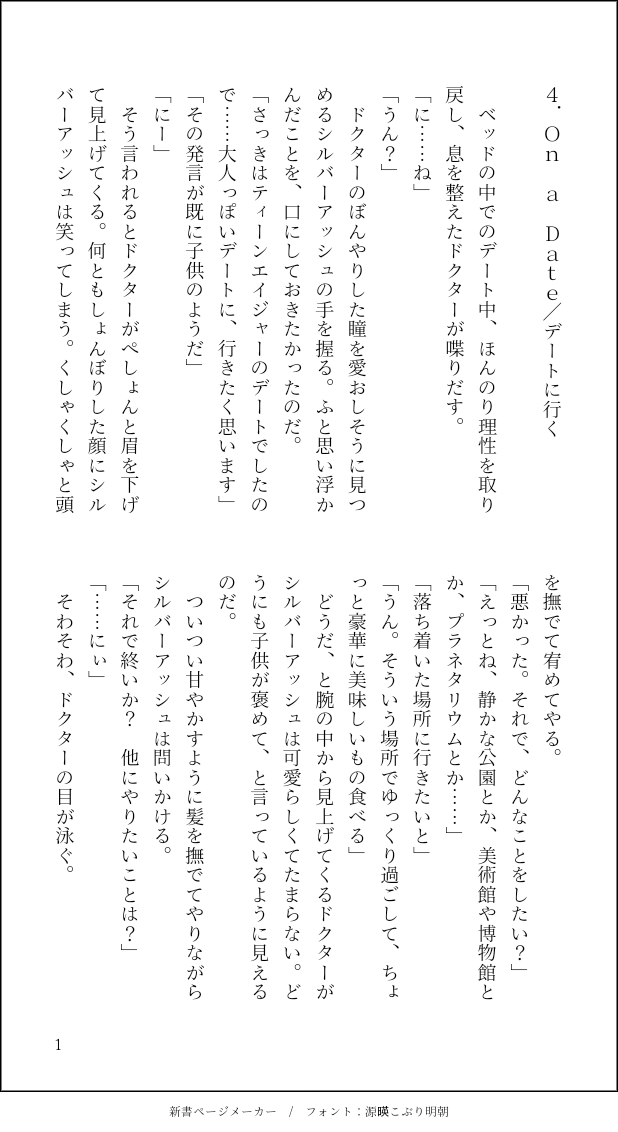 ４．Ｏｎ　ａ　Ｄａｔｅ／デートに行く
　ベッドの中でのデート中、ほんのり理性を取り
戻し、息を整えたドクターが喋りだす。
「に……ね」
「うん？」
　ドクターのぼんやりした瞳を愛おしそうに見つ
めるシルバーアッシュの手を握る。ふと思い浮か
んだことを、口にしておきたかったのだ。
「さっきはティーンエイジャーのデートでしたの
で……大人っぽいデートに、行きたく思います」
「その発言が既に子供のようだ」
「にー」
　そう言われるとドクターがぺしょんと眉を下げ
て見上げてくる。何ともしょんぼりした顔にシル
バーアッシュは笑ってしまう。くしゃくしゃと頭
を撫でて宥めてやる。
「悪かった。それで、どんなことをしたい？」
「えっとね、静かな公園とか、美術館や博物館と
か、プラネタリウムとか……」
「落ち着いた場所に行きたいと」
「うん。そういう場所でゆっくり過ごして、ちょ
っと豪華に美味しいもの食べる」
　どうだ、と腕の中から見上げてくるドクターが
シルバーアッシュは可愛らしくてたまらない。ど
うにも子供が褒めて、と言っているように見える
のだ。
　ついつい甘やかすように髪を撫でてやりながら
シルバーアッシュは問いかける。
「それで終いか？　他にやりたいことは？」
「……にぃ」
　そわそわ、ドクターの目が泳ぐ。
1
新書ページメーカー　/　フォント：源暎こぶり明朝